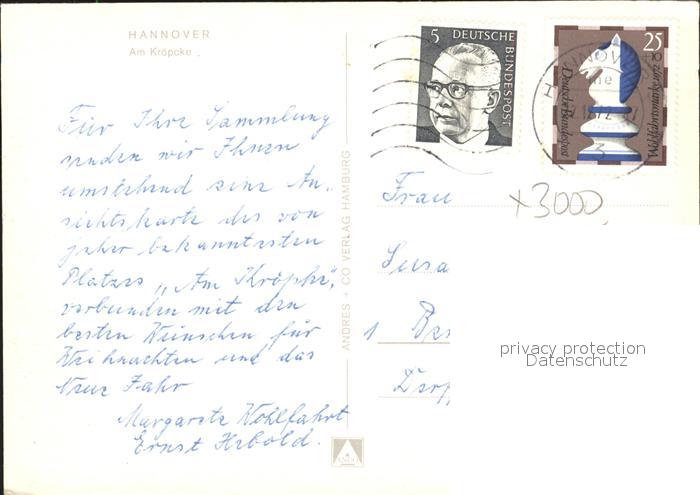 HANNOVER
Am Kröpcke
5 DEUTSCHE BUNDESPOST
25
Wohlfahrtsmarke
Deutsche Bundespost
HANNOVER
3
Für Ihre Sammlung
senden wir Ihnen
umstehend eine An-
sichtskarte des von
jeher bekanntesten
Platzes „Am Kröpke",
verbunden mit den
besten Wünschen für
Weihnachten und das
Neue Jahr
Margarete Wohlfahrt
Ernst Hebold.
ANDRES + CO VERLAG HAMBURG
Frau
+3000
Susa
1 Ber
privacy protection
Datenschutz